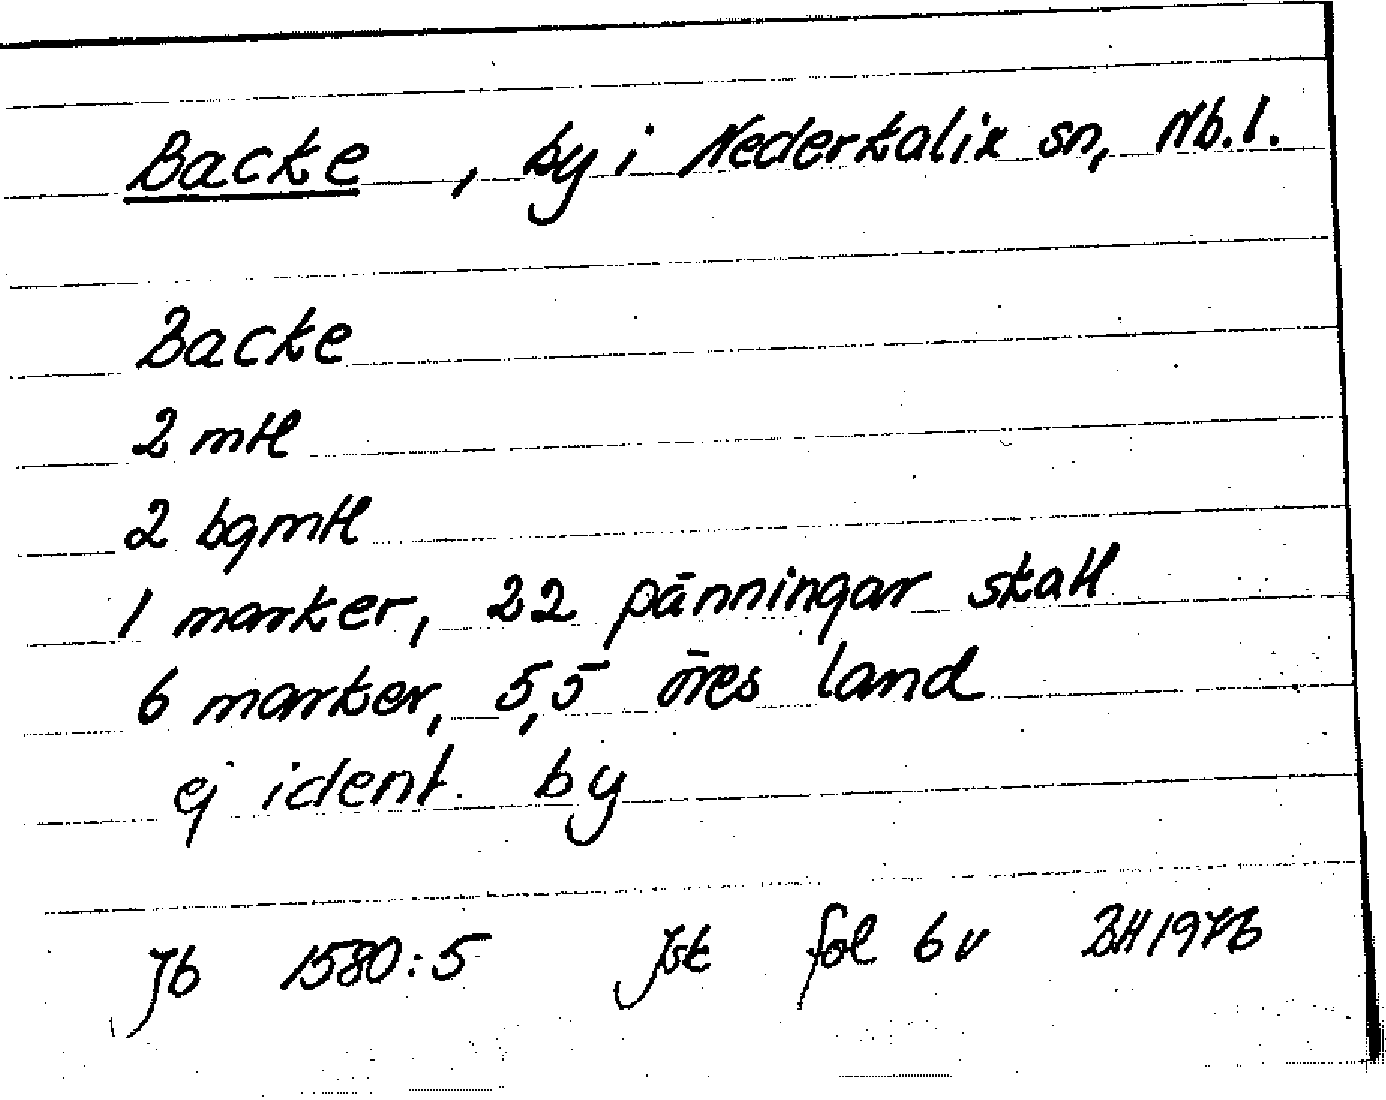 Backe, by i Nederkalix sn, Nb.l.
Backe
2 mtl
2 bgmtl
1 marker, 22 pänningar skatt
6 marker, 5,5 öres land
ej ident. by
Jb 1580:5 Jbk fol 6v BH 1976